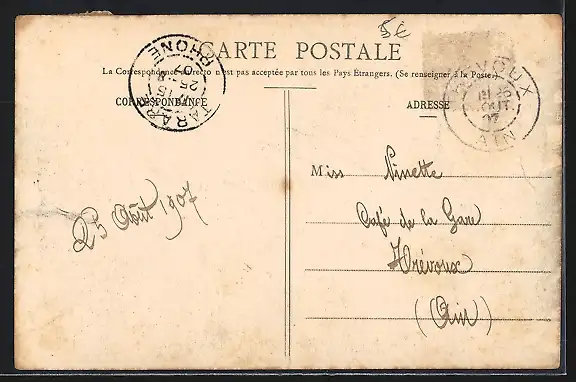 5€
CARTE POSTALE
La Correspondance au recto n'est pas acceptée par tous les Pays Etrangers. (Se renseigner à la Poste.)
CORRESPONDANCE
ADRESSE
TARARE
RHONE
25
VOUX
AIN
07
Miss Ninette
Café de la Gare
Trévoux
(Ain)
25 Août 1907